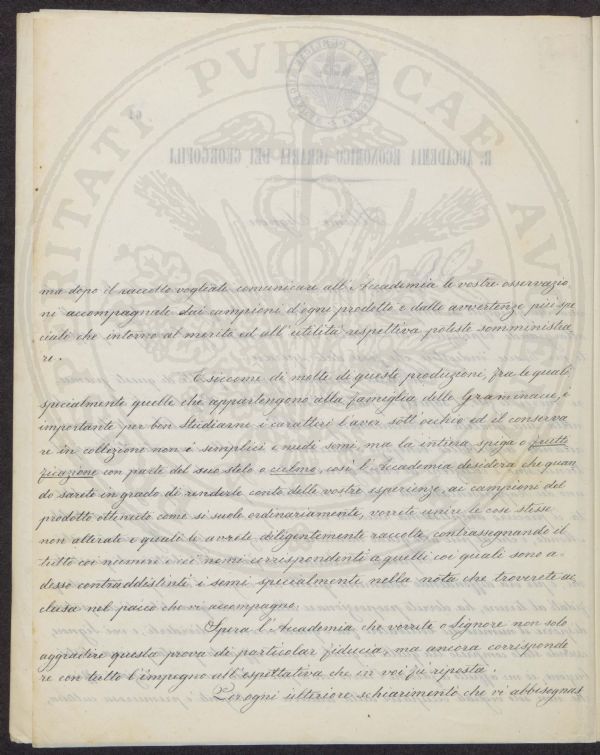 PROSPERITATI PVBLICAE AVGENDAE
R. ACCADEMIA ECONOMICO-AGRARIA DEI GEORGOFILI
ma dopo il raccolto vogliate comunicare all'Accademia le vostre osservazio
ni accompagnate dai campioni d'ogni prodotto e dalle avvertenze più spe
ciali che intorno al merito ed all'utilità respettiva poteste somministra
re.
E siccome di molte di queste produzioni, fra le quali
specialmente quelle che appartengono alla famiglia delle Graminacee, è
importante per ben studiarne i caratteri l'aver sott'occhio ed il conserva
re in collezione non i semplici e nudi semi, ma la intiera spiga o frutti
ficazione con parte del suo stelo o culmo, così l'Accademia desidera che quan
do sarete in grado di renderle conto delle vostre esperienze, ai campioni del
prodotto ottenuto come si suole ordinariamente, vorrete unire le cose stesse
non alterate e quali le avrete diligentemente raccolte, contrassegnando il
tutto coi numeri e coi nomi corrispondenti a quelli coi quali sono a=
desso contraddistinti i semi specialmente nella nota che troverete ac
clusa nel pacco che vi accompagno.
Spera l'Accademia che vorrete o signore non solo
aggradire questa prova di particolar fiducia, ma ancora corrisponde
re con tutto l'impegno all'espettativa che in voi fu riposta.
Per ogni ulteriore schiarimento che vi abbisognas